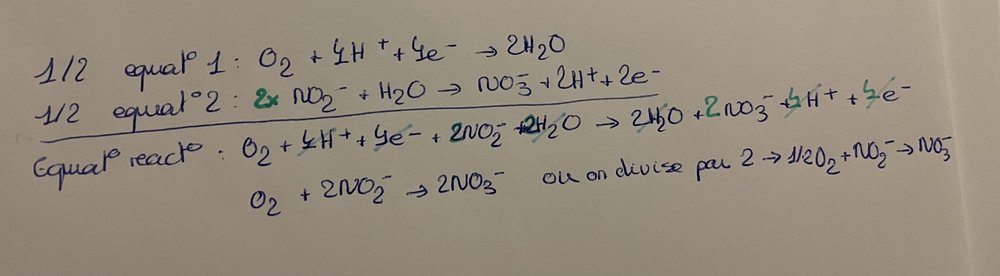 1/2 equat° 1 : O₂ + 4H⁺ + 4e⁻ → 2H₂O
1/2 equat° 2 : 2x NO₂⁻ + H₂O → NO₃⁻ + 2H⁺ + 2e⁻
Equat° react° : O₂ + 4H⁺ + 4e⁻ + 2NO₂⁻ + 2H₂O → 2H₂O + 2NO₃⁻ + 4H⁺ + 4e⁻
O₂ + 2NO₂⁻ → 2NO₃⁻ ou on divise par 2 → 1/2O₂ + NO₂⁻ → NO₃⁻